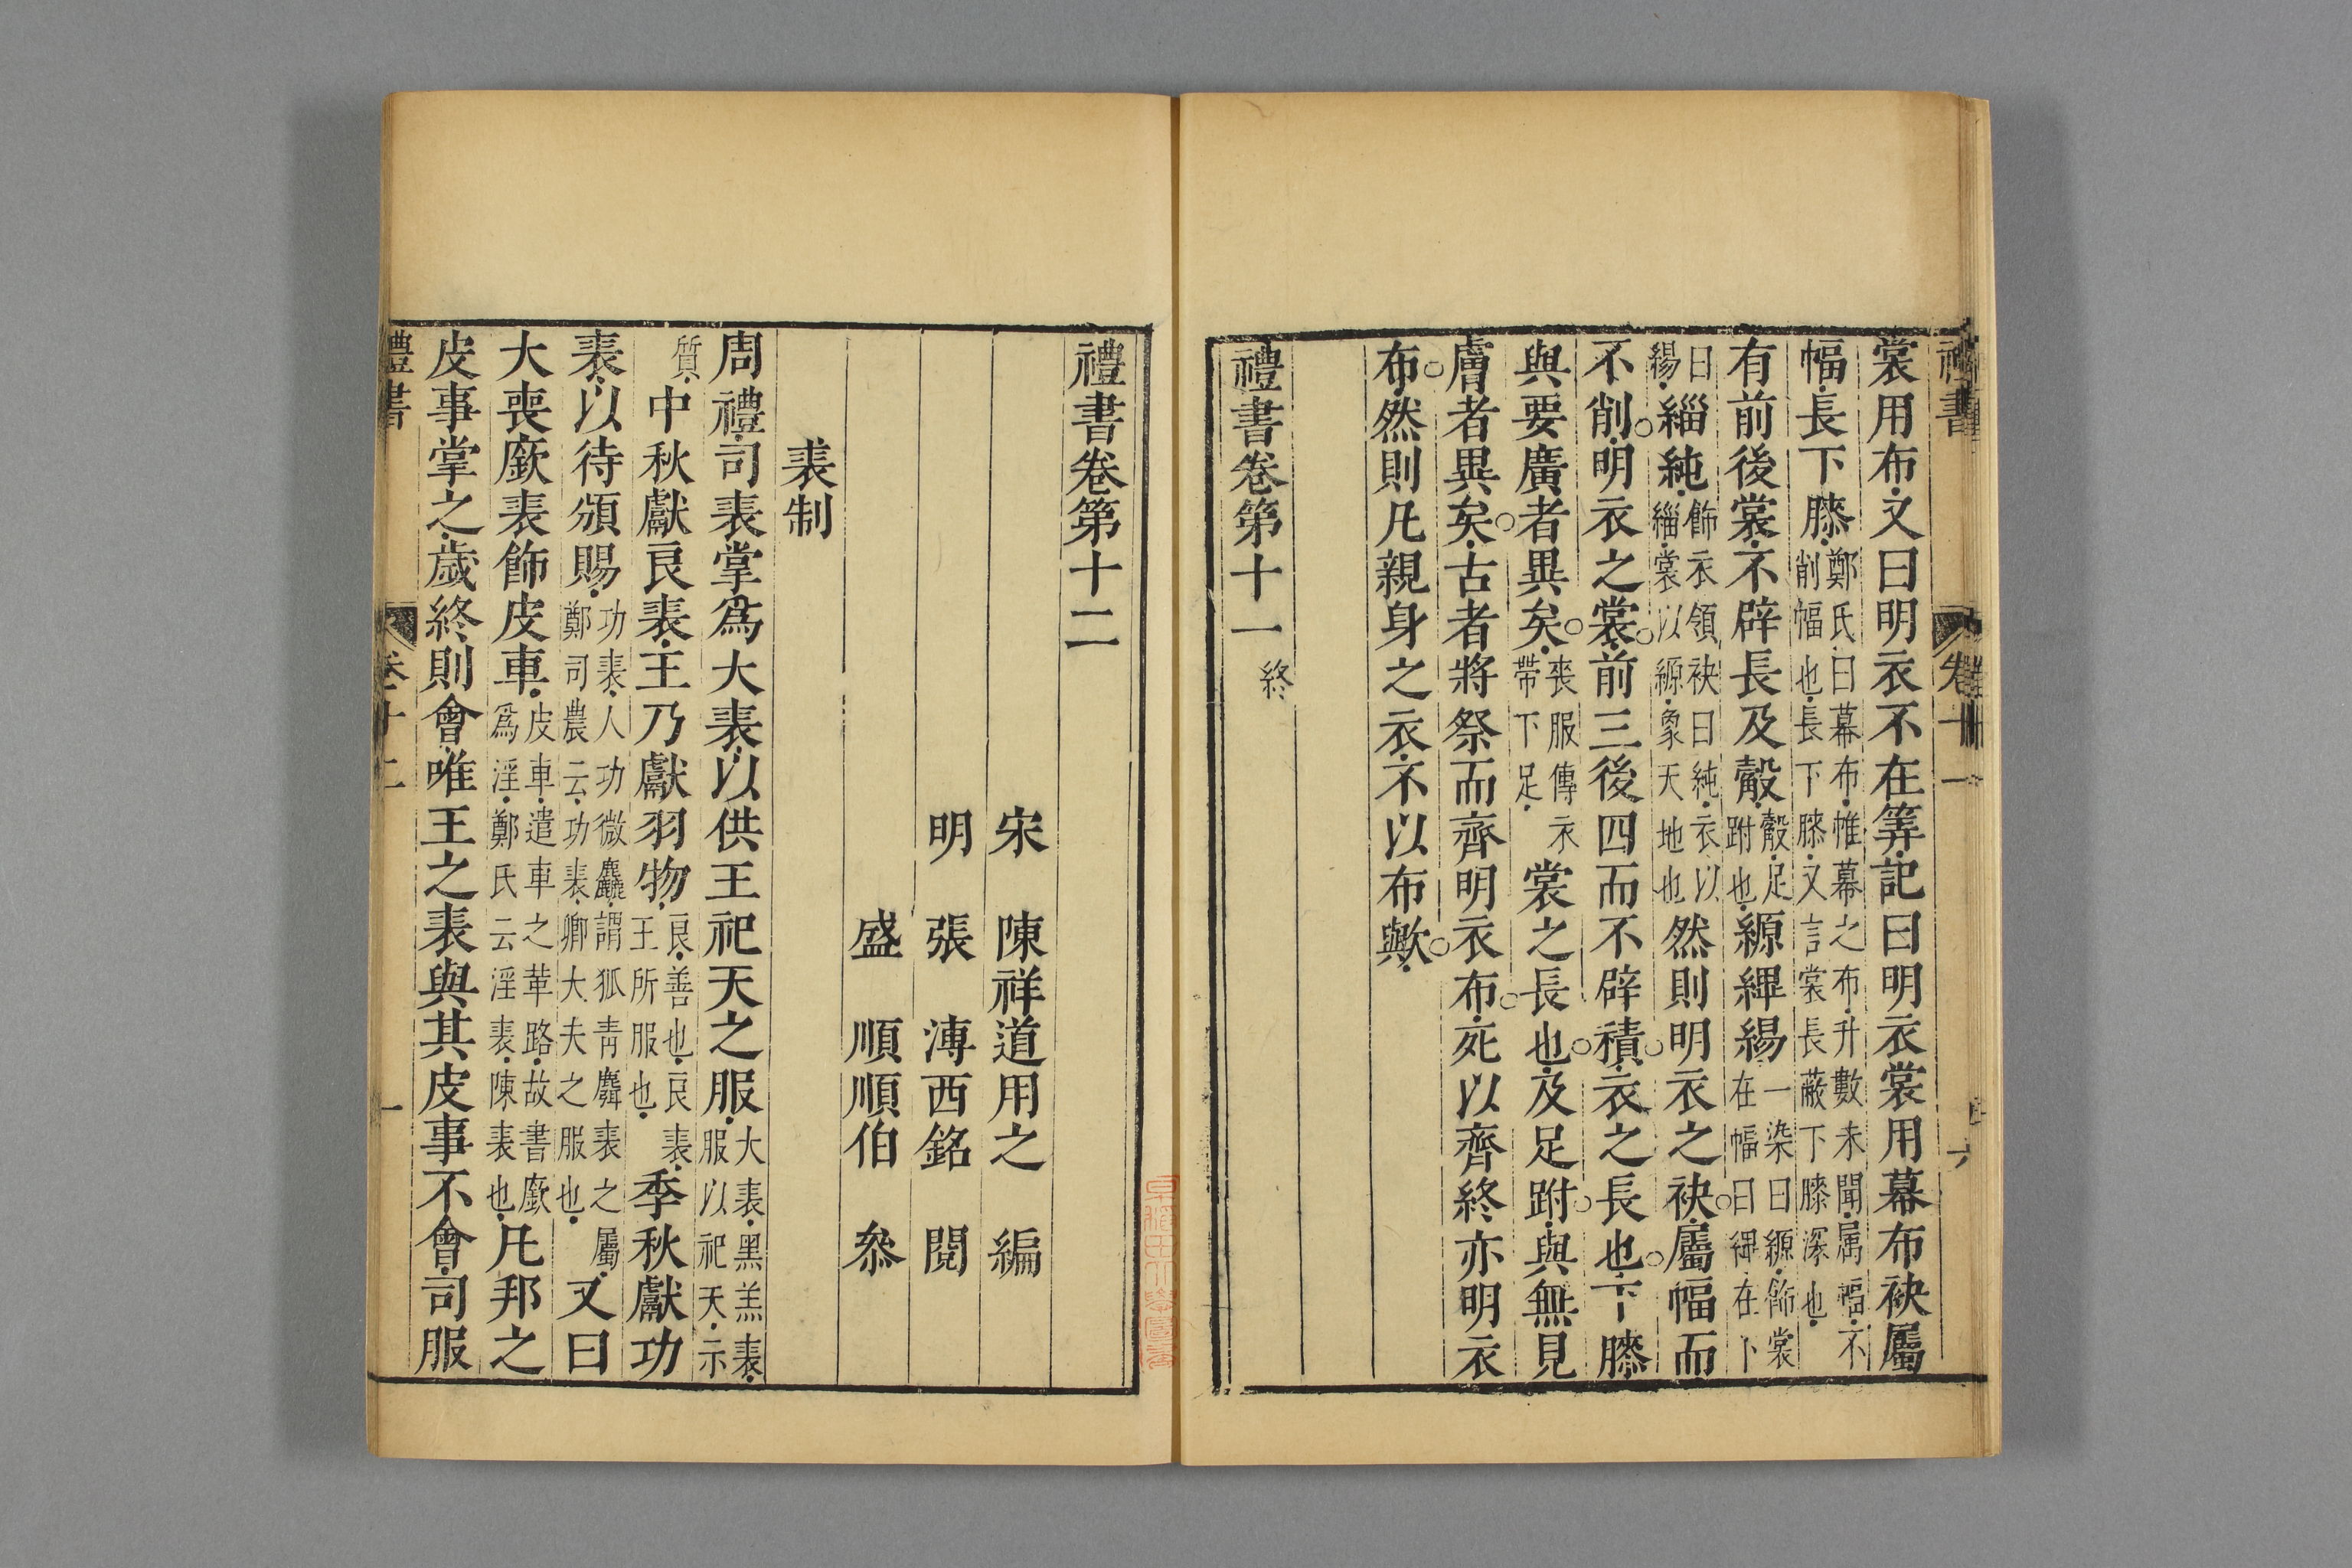 禮書 卷十一 六
裳用布又曰明衣不在筭記曰明衣裳用幕布袂屬
幅長下膝鄭氏曰幕布帷幕之布升數未聞属幅不削幅也長下膝又言裳長蔽下膝深也
有前後裳不辟長及觳觳足跗也縓綼緆一染曰縓飾裳在幅曰綼在下
曰緆緇純飾衣領袂曰純衣以緇裳以縓象天地也然則明衣之袂屬幅而
不削明衣之裳前三後四而不辟積衣之長也下膝
與要廣者異矣喪服傳衣帶下足裳之長也及足跗與無見
膚者異矣古者將祭而齊明衣布死以齊終亦明衣
布然則凡親身之衣不以布歟
禮書卷第十一 終
禮書卷第十二
宋 陳祥道用之 編
明 張 溥西銘 閱
盛 順順伯 叅
裘制
周禮司裘掌爲大裘以供王祀天之服大裘黑羔裘服以祀天示
質中秋獻良裘王乃獻羽物良善也良裘王所服也季秋獻功
裘以待頒賜功裘人功微麤謂狐青麛裘之屬鄭司農云功裘卿大夫之服也又曰
大喪廞裘飾皮車皮車遣車之革路故書廞爲淫鄭氏云淫裘陳裘也凡邦之
皮事掌之歲終則會唯王之裘與其皮事不會司服
禮書 卷十二 一